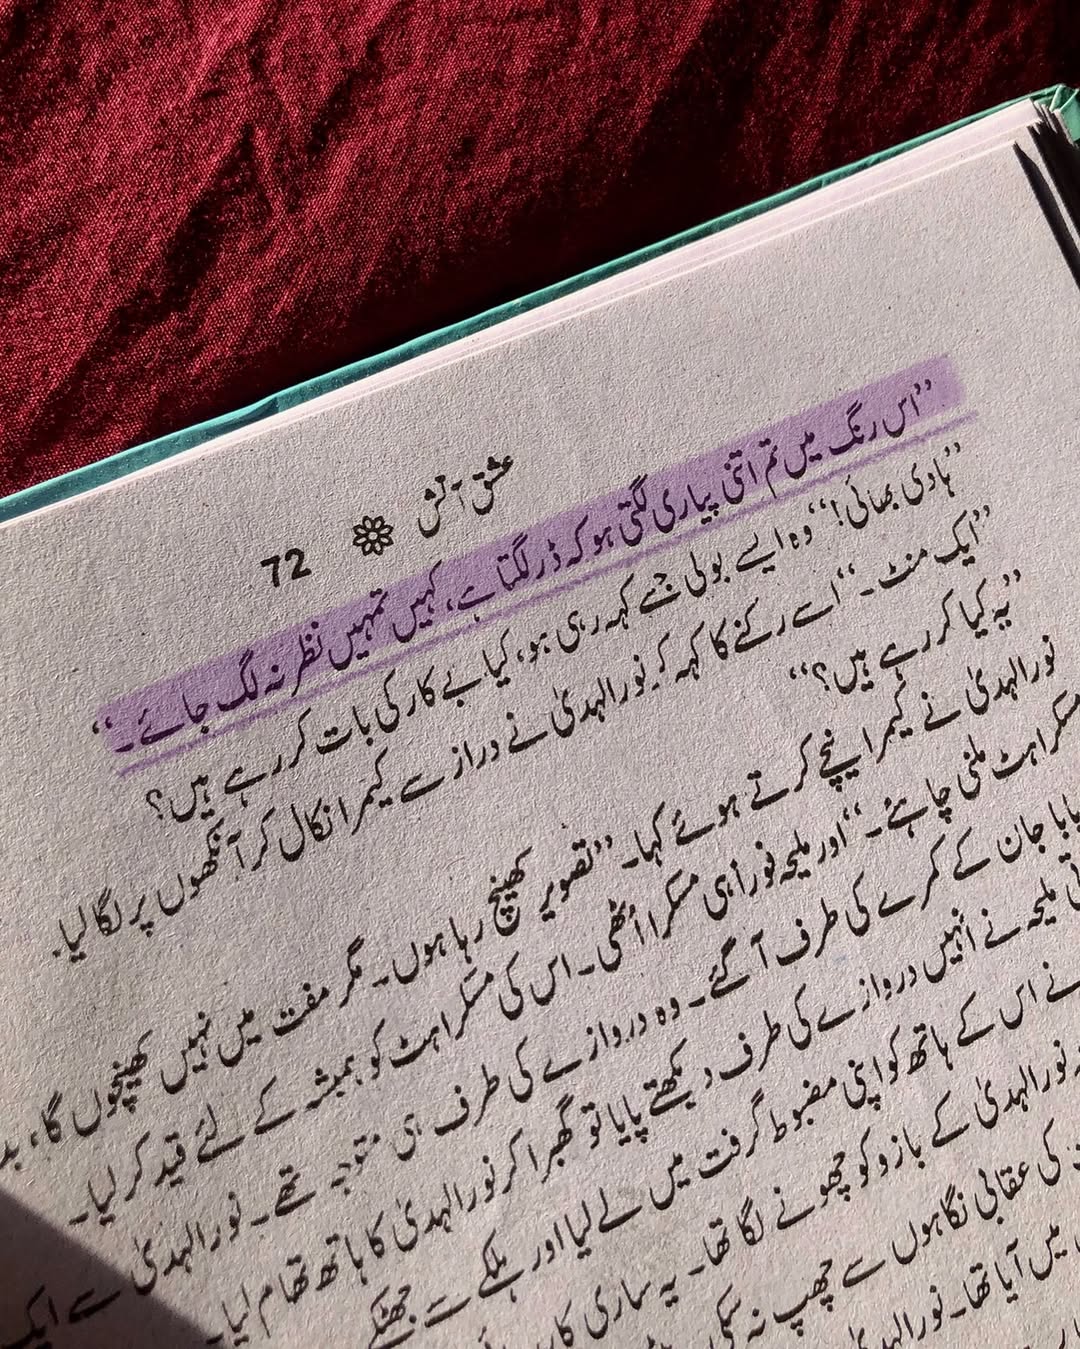 عشق آتش ❁ 72
”اس رنگ میں تم اتنی پیاری لگتی ہو کہ ڈر لگتا ہے، کہیں تمہیں نظر نہ لگ جائے۔“
”ہادی بھائی!“ وہ ایسے بولی جیسے کہہ رہی ہو، کیا بے کار کی بات کر رہے ہیں؟
”ایک منٹ۔“ اسے رکنے کا کہہ کر نورالہدیٰ نے دراز سے کیمرا نکال کر آنکھوں پر لگا لیا۔
”یہ کیا کر رہے ہیں؟“
نورالہدیٰ نے کیمرا نیچے کرتے ہوئے کہا۔ ”تصویر کھینچ رہا ہوں۔ مگر مفت میں نہیں کھینچوں گا،
مسکراہٹ ملنی چاہئے۔“ اور ملیحہ فوراً ہی مسکرا اُٹھی۔ اس کی مسکراہٹ کو ہمیشہ کے لئے قید کر لیا۔
بابا جان کے کمرے کی طرف آ گئے۔ وہ دروازے کی طرف ہی متوجہ تھے۔ نورالہدیٰ سے ایک
ملیحہ نے اُنہیں دروازے کی طرف دیکھتے پایا تو گھبرا کر نورالہدیٰ کا ہاتھ تھام لیا۔
نے اس کے ہاتھ کو اپنی مضبوط گرفت میں لے لیا اور ہلکے سے جھٹکے
نورالہدیٰ کے بازو کو چھونے لگا تھا۔ یہ ساری
کی عقابی نگاہوں سے چھپ نہ سکی
میں آیا تھا۔